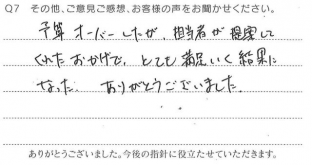 Q7 その他、ご意見ご感想、お客様の声をお聞かせください。
予算オーバーしたが、担当者が提案して
くれたおかげで、とても満足いく結果に
なった。ありがとうございました。
ありがとうございました。今後の指針に役立たせていただきます。